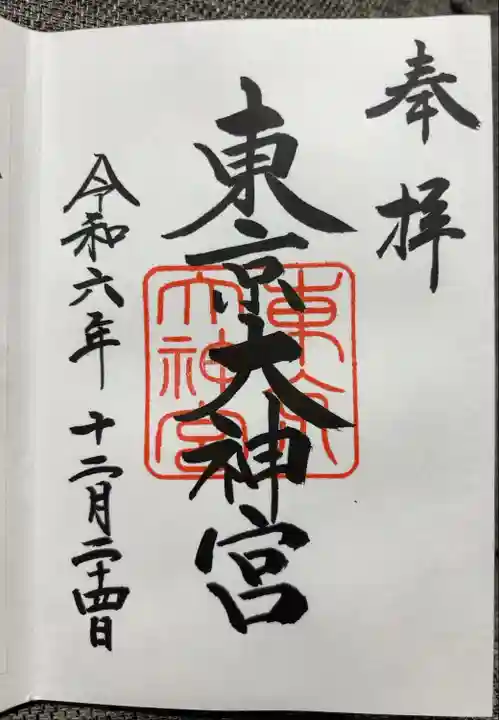 奉拝
東京大神宮
東京
大神宮
令和六年十二月二十四日